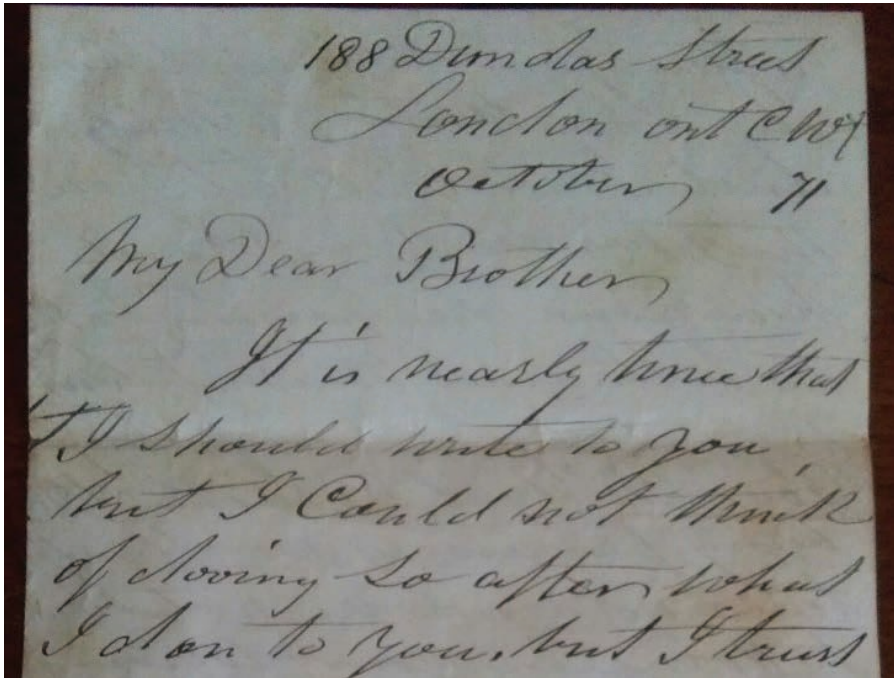 188 Dundas Street
London ont C W
October 71
My Dear Brother
It is nearly time that
I should write to you,
but I Could not think
of dooing so after what
I don to you, but I trust